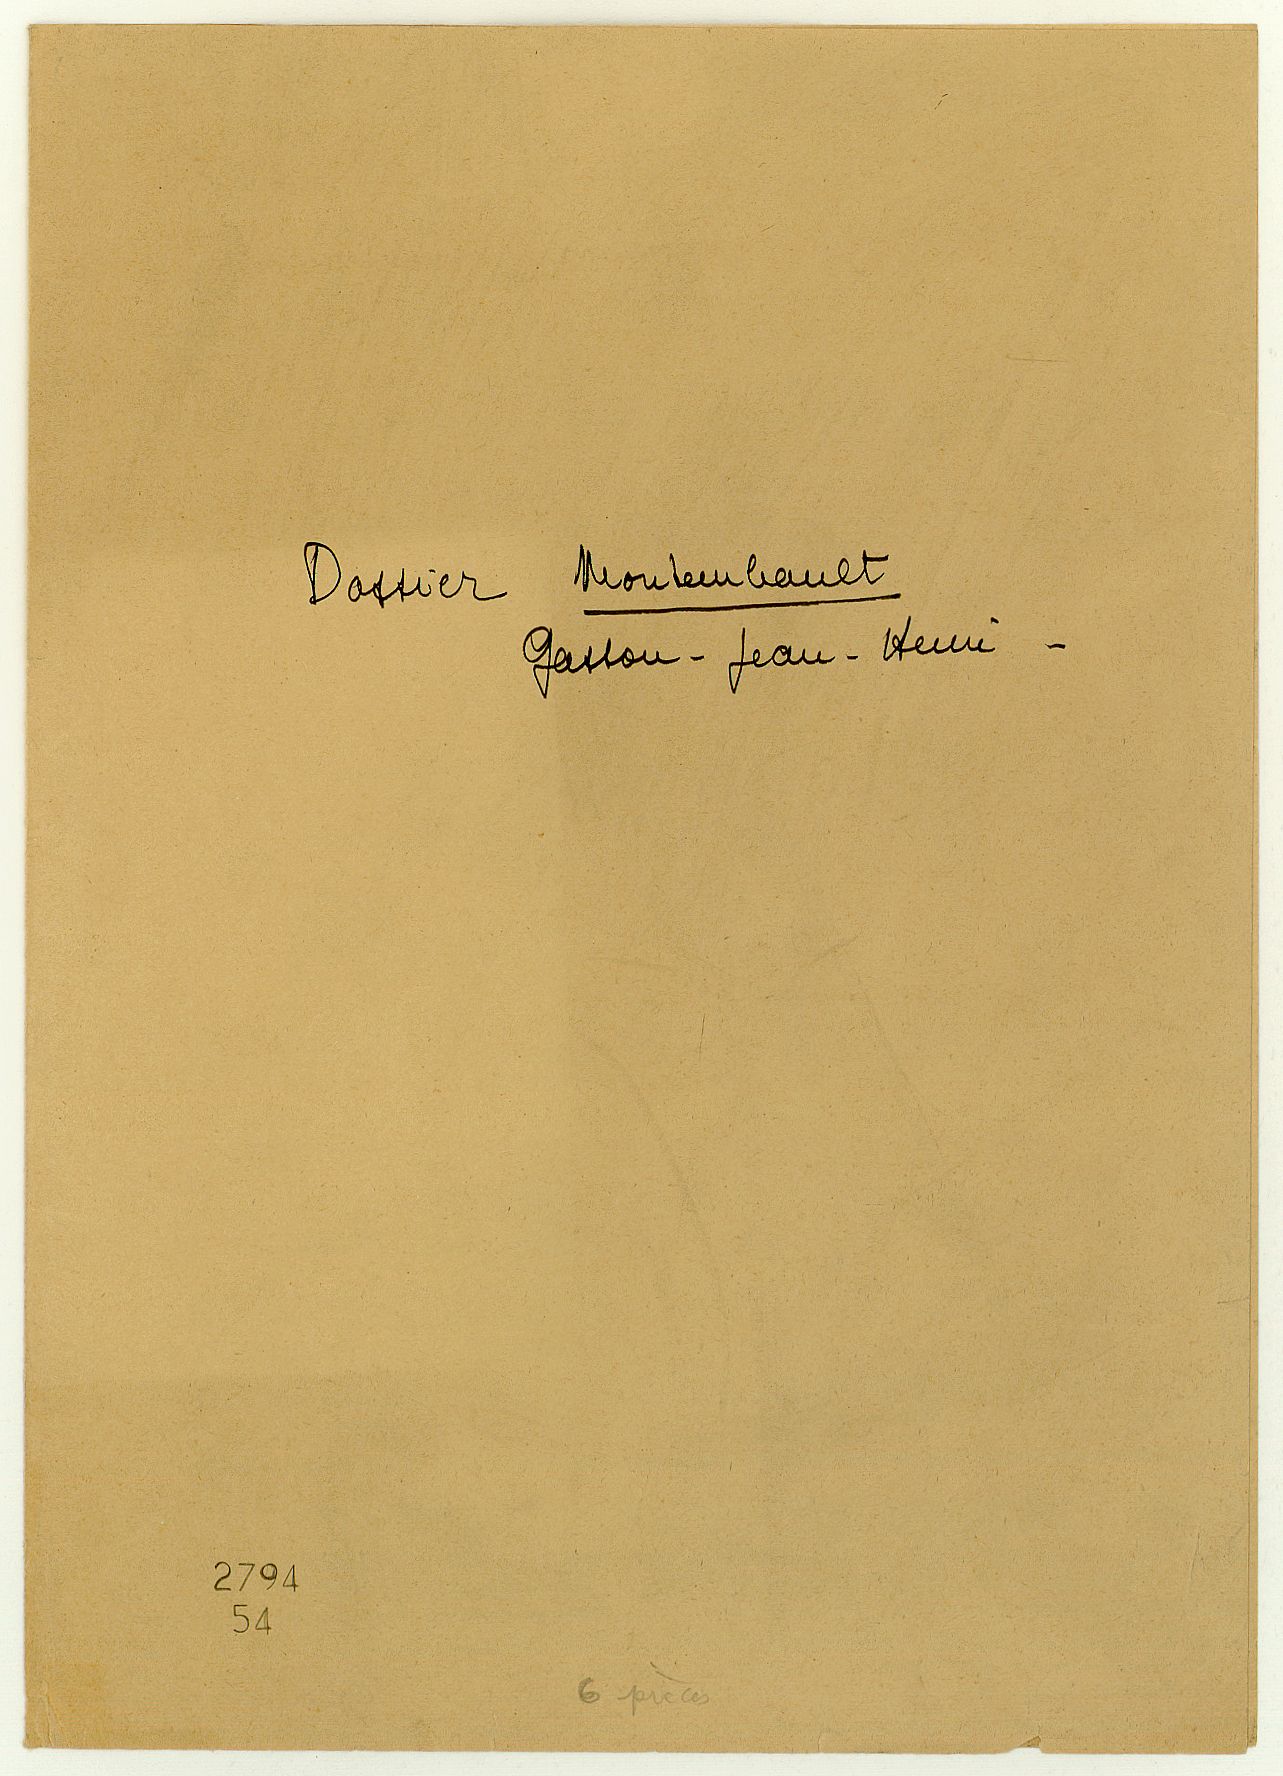 Dossier Montembault
Gaston - Jean - Henri -
2794
54
6 pièces